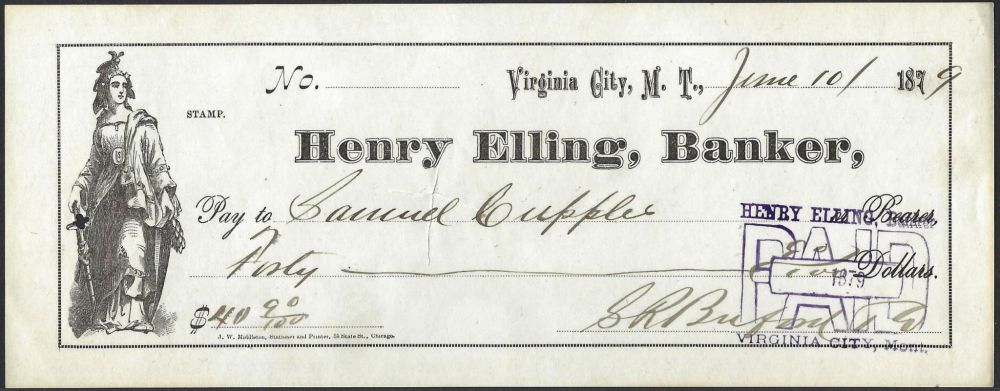 No. Virginia City, M. T., June 10/ 1879
STAMP.
Henry Elling, Banker,
Pay to Samuel Cupples or Bearer,
Forty Dollars.
$40 00/100 S R Buford & Co
J. W. Middleton, Stationer and Printer, 55 State St., Chicago.
HENRY ELLING, Banker
PAID
1879
VIRGINIA CITY, Mont.